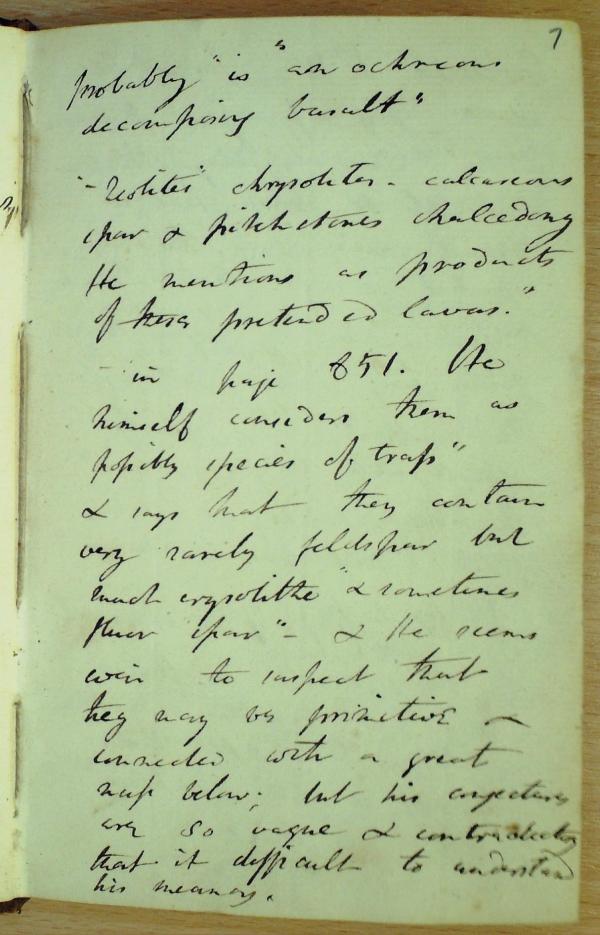 7
probably "is" "an ochreous
decomposing basalt"
"- Zeolites chrysolites - calcareous
spar & pitchstones chalcedony
He mentions as products
of these pretended lavas."
in page 851. He
himself considers them as
possibly species of trap"
& says that they contain
very rarely feldspar but
much crysolithe "& sometimes
fluor spar" - & He seems
even to suspect that
they may be primitive
connected with a great
mass below; but his conjectures
are so vague & contradictory
that it difficult to understand
his meaning.